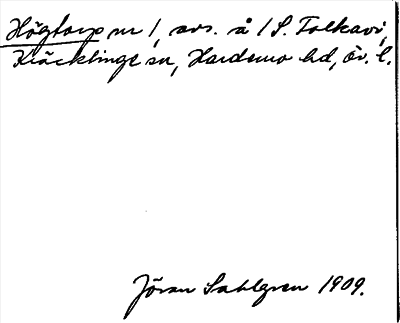 Högtorp nr 1, avs. å 1 S. Folkavi,
Kräcklinge sn, Hardemo hd, Ör. l.
Jöran Sahlgren 1909.